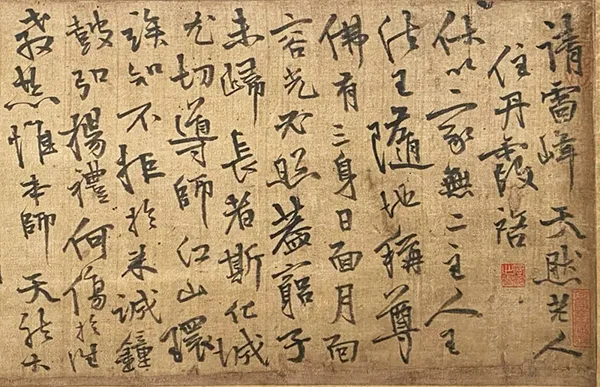 請雷峰天然老人
住丹霞啓
伏以家無二主人王
法王隨地稱尊
佛有三身日面月面
容光必照蓋窮子
未歸長者斯化城
尤切導師江山環
知不拒於來誠鐘
鼓引揚禮何傷於往
教恭惟本師天然大